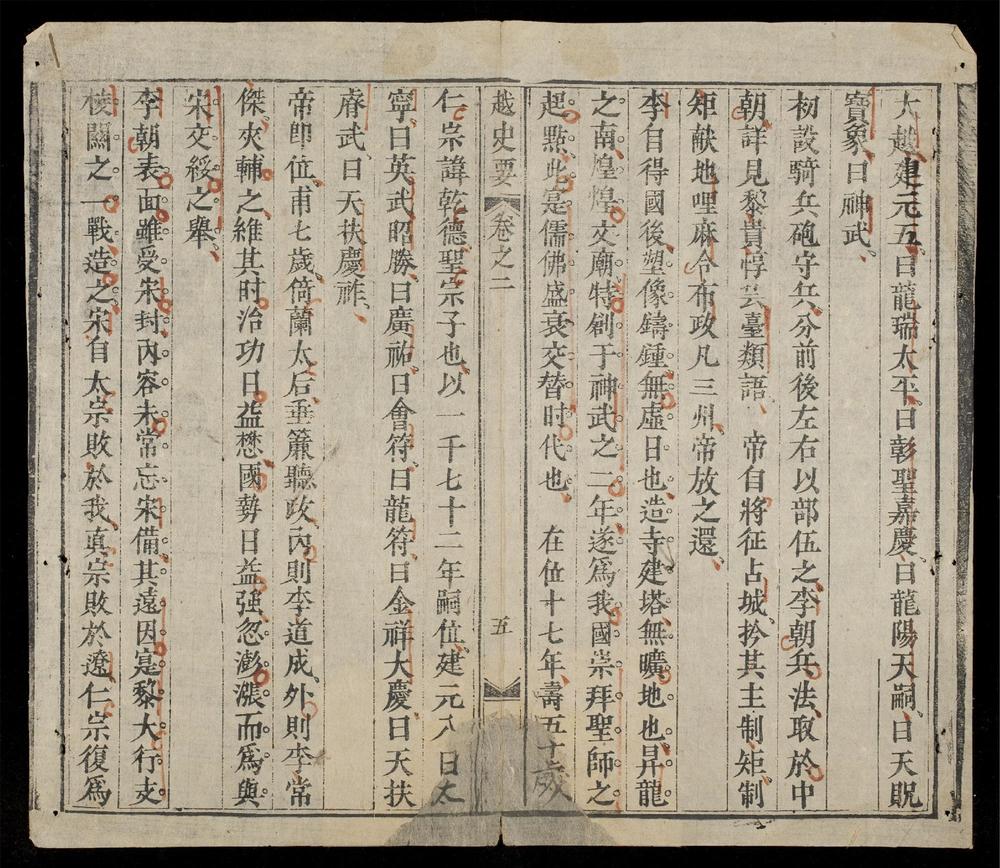 大越、建元五、曰龍瑞太平、曰彰聖嘉慶、曰龍陽天嗣、曰天貺
寶象、曰神武、
初設騎兵砲守兵、分前後左右以部伍之、李朝兵法、取於中
朝、詳見黎貴惇芸臺類語、 帝自將征占城、擒其主制矩、制
矩献地哩麻令布政凡三州、帝放之還、
李自得國後、塑像鑄鍾、無虛日也、造寺建塔、無曠地也、昇龍
之南、煌煌文廟、特創于神武之二年、遂爲我國崇拜聖師之
起點、此寔儒佛盛衰交替时代也、 在位十七年、壽五十歲
越史要 卷之二 五
仁宗諱乾德、聖宗子也、以一千七十二年嗣位、建元八曰太
寧、曰英武昭勝、曰廣祐、曰會符、曰龍符、曰金祥大慶、曰天扶
睿武、曰天扶慶祚、
帝即位、甫七歲、倚蘭太后、垂簾聽政、内則李道成、外則李常
傑、夾輔之、維其时治功日益懋、國勢日益強、忽澎漲而爲與
宋交綏之舉、
李朝表面雖受宋封、内容未常忘宋備、其遠因寔黎大行支
棱關之一戰、造之、宋自太宗敗於我、真宗敗於遼、仁宗復爲